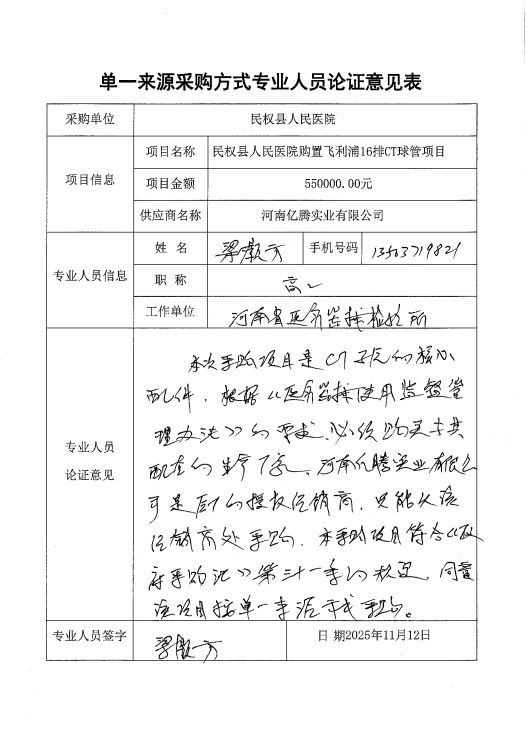 单一来源采购方式专业人员论证意见表
采购单位 民权县人民医院
项目信息
项目名称 民权县人民医院购置飞利浦16排CT球管项目
项目金额 550000.00元
供应商名称 河南亿腾实业有限公司
专业人员信息
姓 名 梁 方 手机号码 13503719821
职 称 高工
工作单位 河南省医疗器械检验所
专业人员
论证意见
本次采购项目是CT系统的核心
配件，根据《医疗器械使用监督管
理办法》的要求，必须购买与其
配套的生产厂家，河南亿腾实业有限公
司是厂的授权经销商，只能从该
经销商处采购，本采购项目符合《政
府采购法》第三十一条的规定，同意
该项目按单一来源方式采购。
专业人员签字 梁 方 日 期2025年11月12日